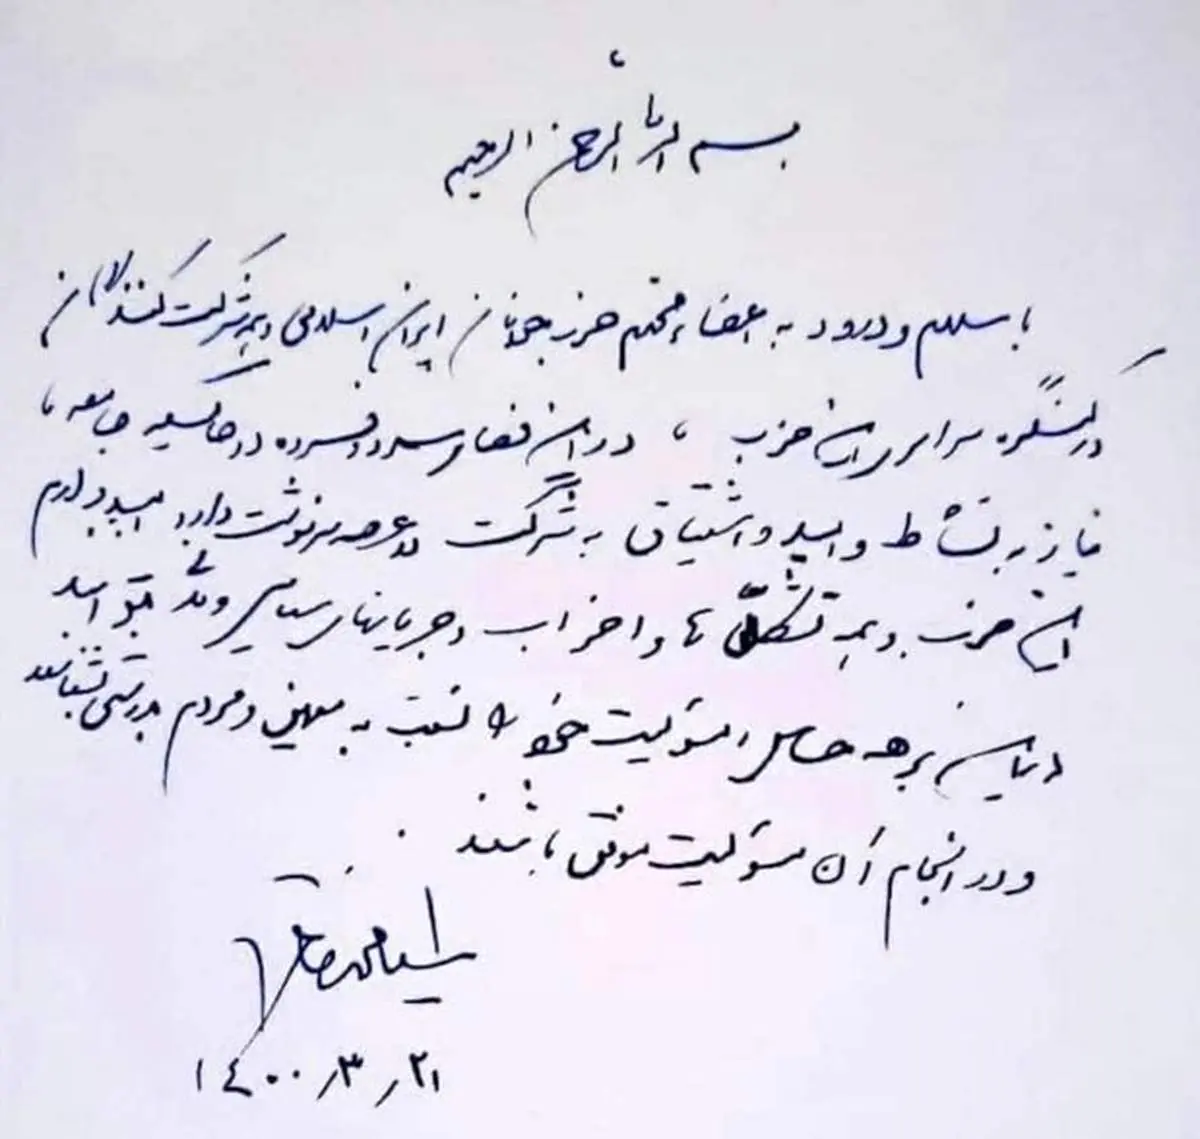 بسم الله الرحمن الرحیم
با سلام و درود به اعضاء محترم حزب جوانان ایران اسلامی و همه شرکت کنندگان
در کنگره سراسری این حزب ، در این فضای سرد و افسرده در حاکمیت جامعه ما
نیاز به نشاط و امید و اشتیاق به شرکت در عرصه سرنوشت دارد امیدوارم
این حزب و همه تشکل ها و احزاب و جریانهای سیاسی و مدنی بتوانند
در این برهه حساس مسئولیت خود را نسبت به میهن و مردم بدرستی بشناسند
و در انجام آن مسئولیت موفق باشند .
سید محمد خاتمی
۱۴۰۰٫۳٫۲۱